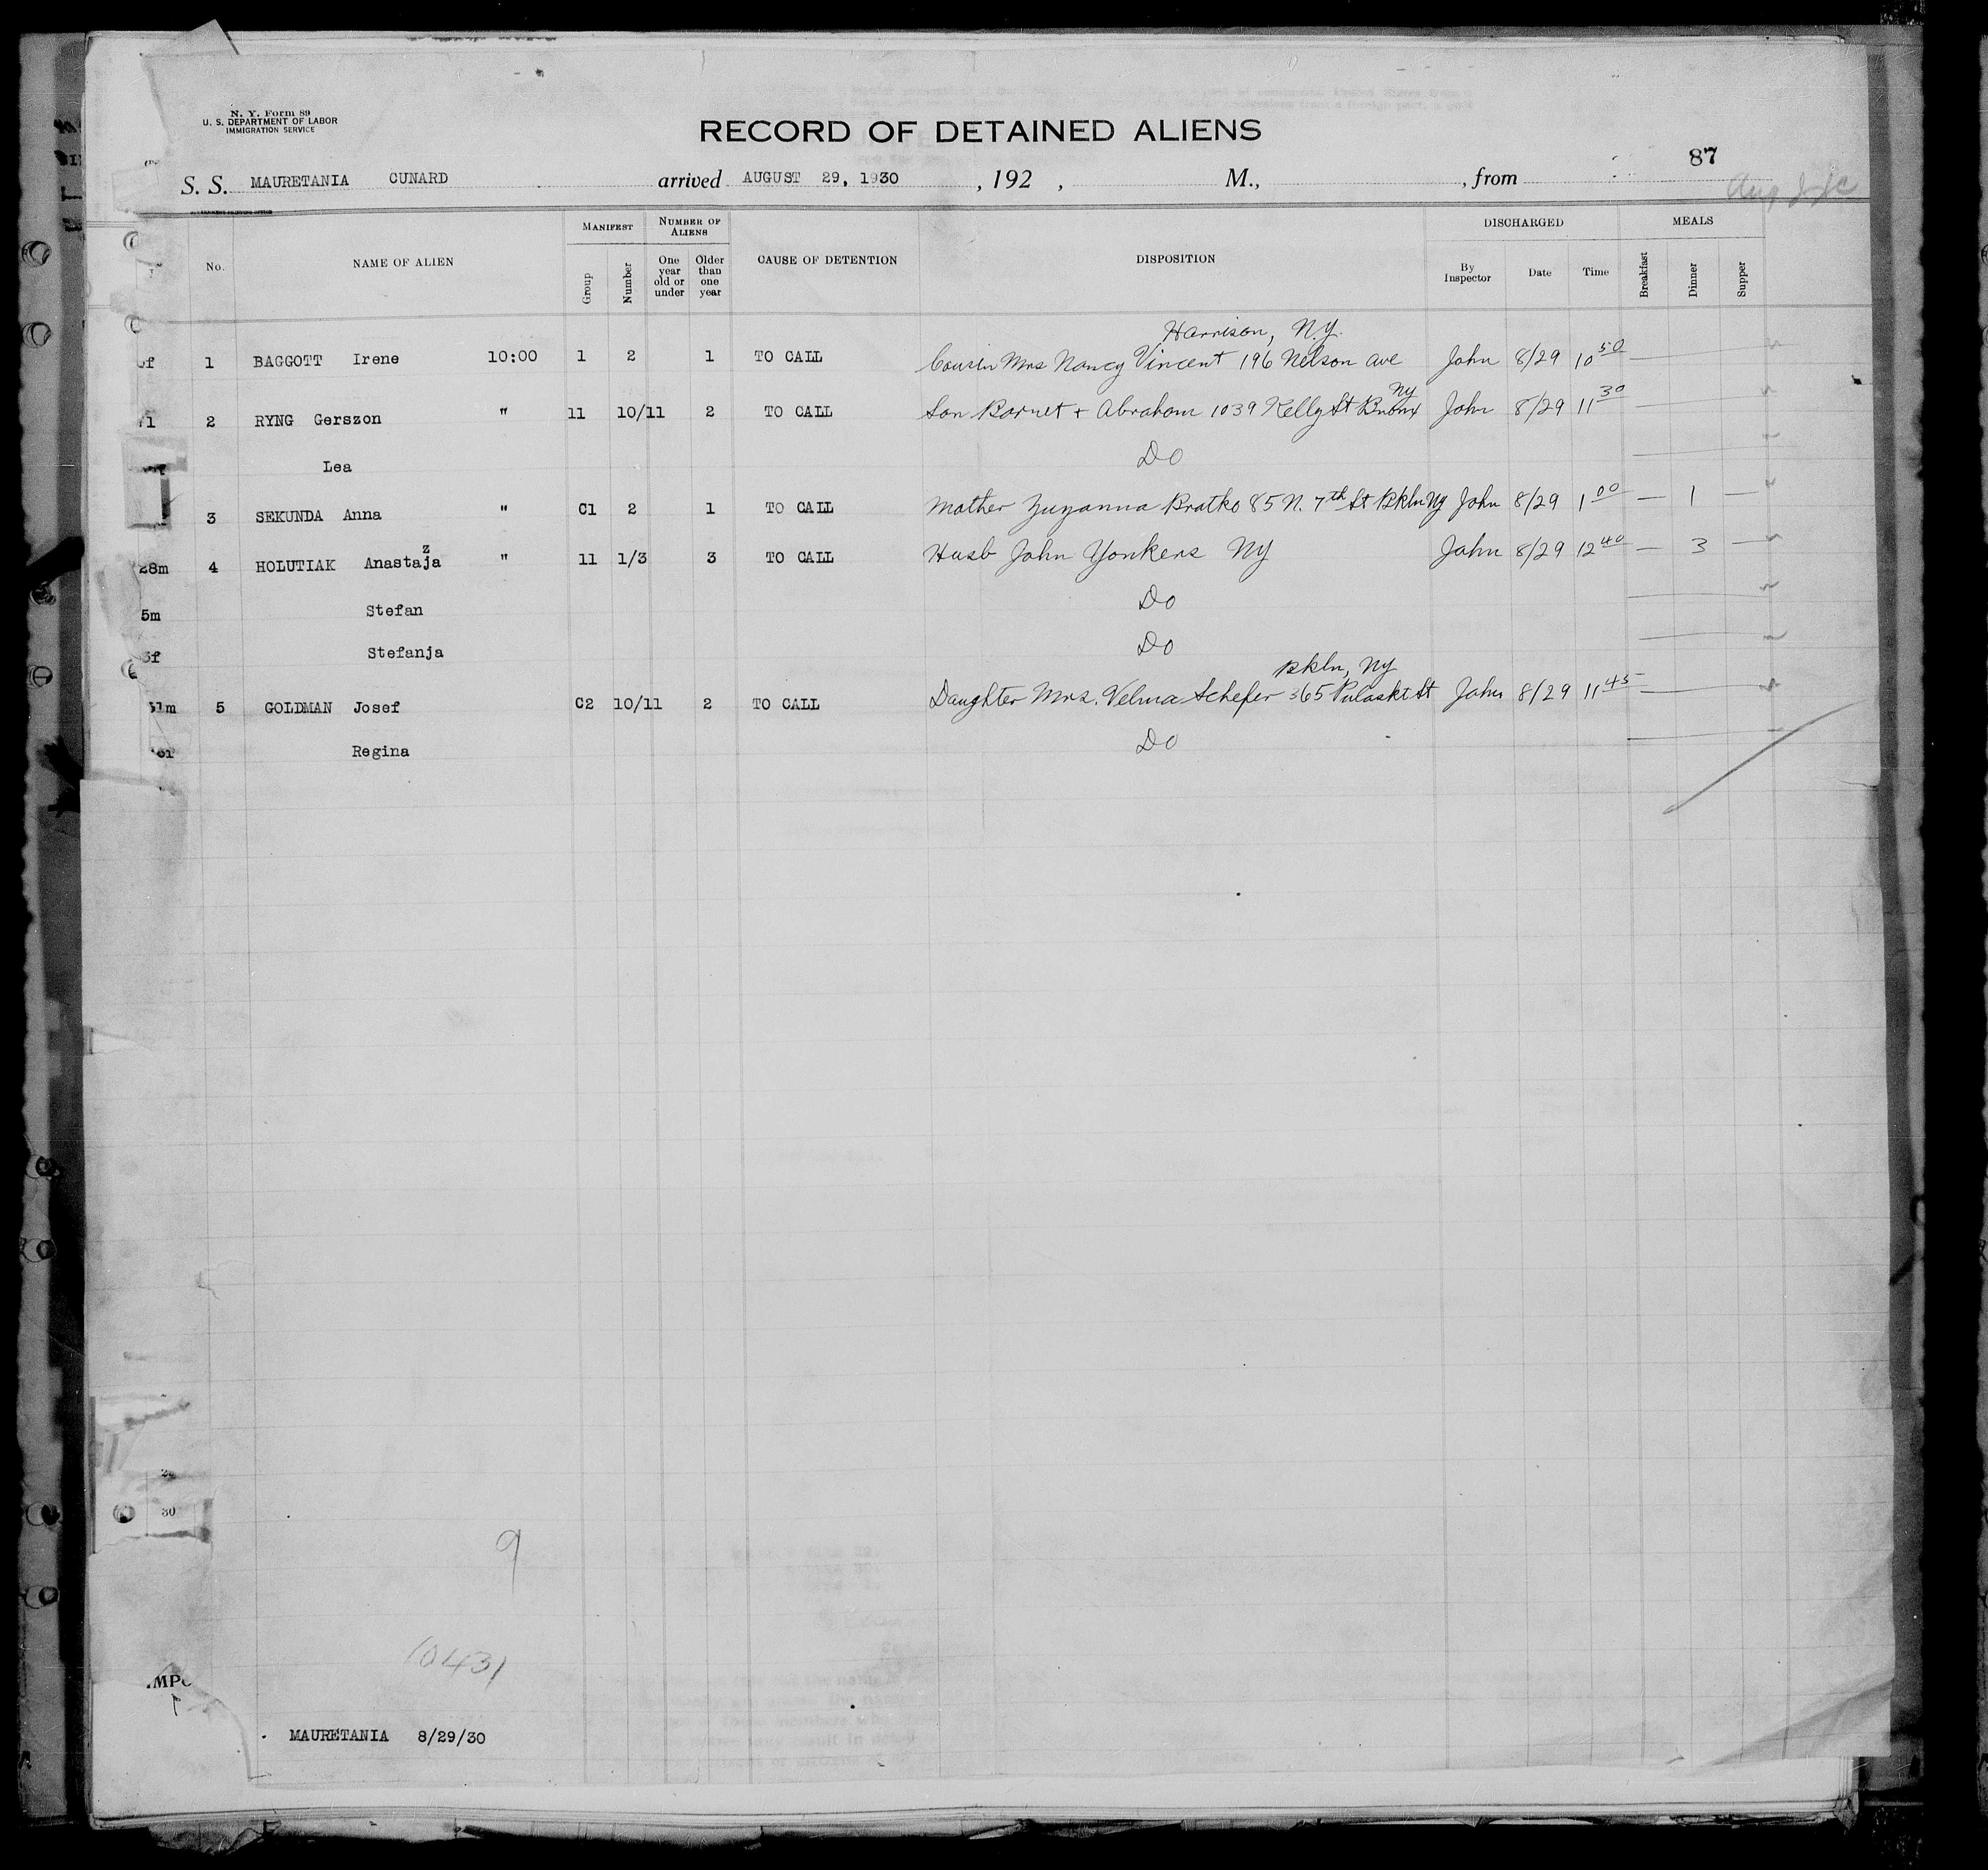 N. Y. Form 89
U. S. DEPARTMENT OF LABOR
IMMIGRATION SERVICE
RECORD OF DETAINED ALIENS
87
S. S. MAURETANIA CUNARD arrived AUGUST 29, 1930, 192 , M., , from
No. NAME OF ALIEN MANIFEST NUMBER OF ALIENS CAUSE OF DETENTION DISPOSITION DISCHARGED MEALS
Group Number One year old or under Older than one year By Inspector Date Time Breakfast Dinner Supper
Harrison, N.Y.
1 BAGGOTT Irene 10:00 1 2 1 TO CALL Cousin Mrs Nancy Vincent 196 Nelson Ave John 8/29 10 50
NY
2 RYNG Gerszon " 11 10/11 2 TO CALL Son Barnet + Abraham 1039 Kelly St Bronx John 8/29 11 30
Lea Do
3 SEKUNDA Anna " C1 2 1 TO CALL Mother Zuzanna Bratko 85 N. 7th St Bkln NY John 8/29 1 00 — 1 —
z
28m 4 HOLUTIAK Anastaja " 11 1/3 3 TO CALL Husb John Yonkers NY John 8/29 12 40 — 3 —
5m Stefan Do
3f Stefanja Do
Bkln, NY
51m 5 GOLDMAN Josef C2 10/11 2 TO CALL Daughter Mrs. Velma Schefer 365 Pulaski St John 8/29 11 45
Regina Do
30
9
10431
MAURETANIA 8/29/30